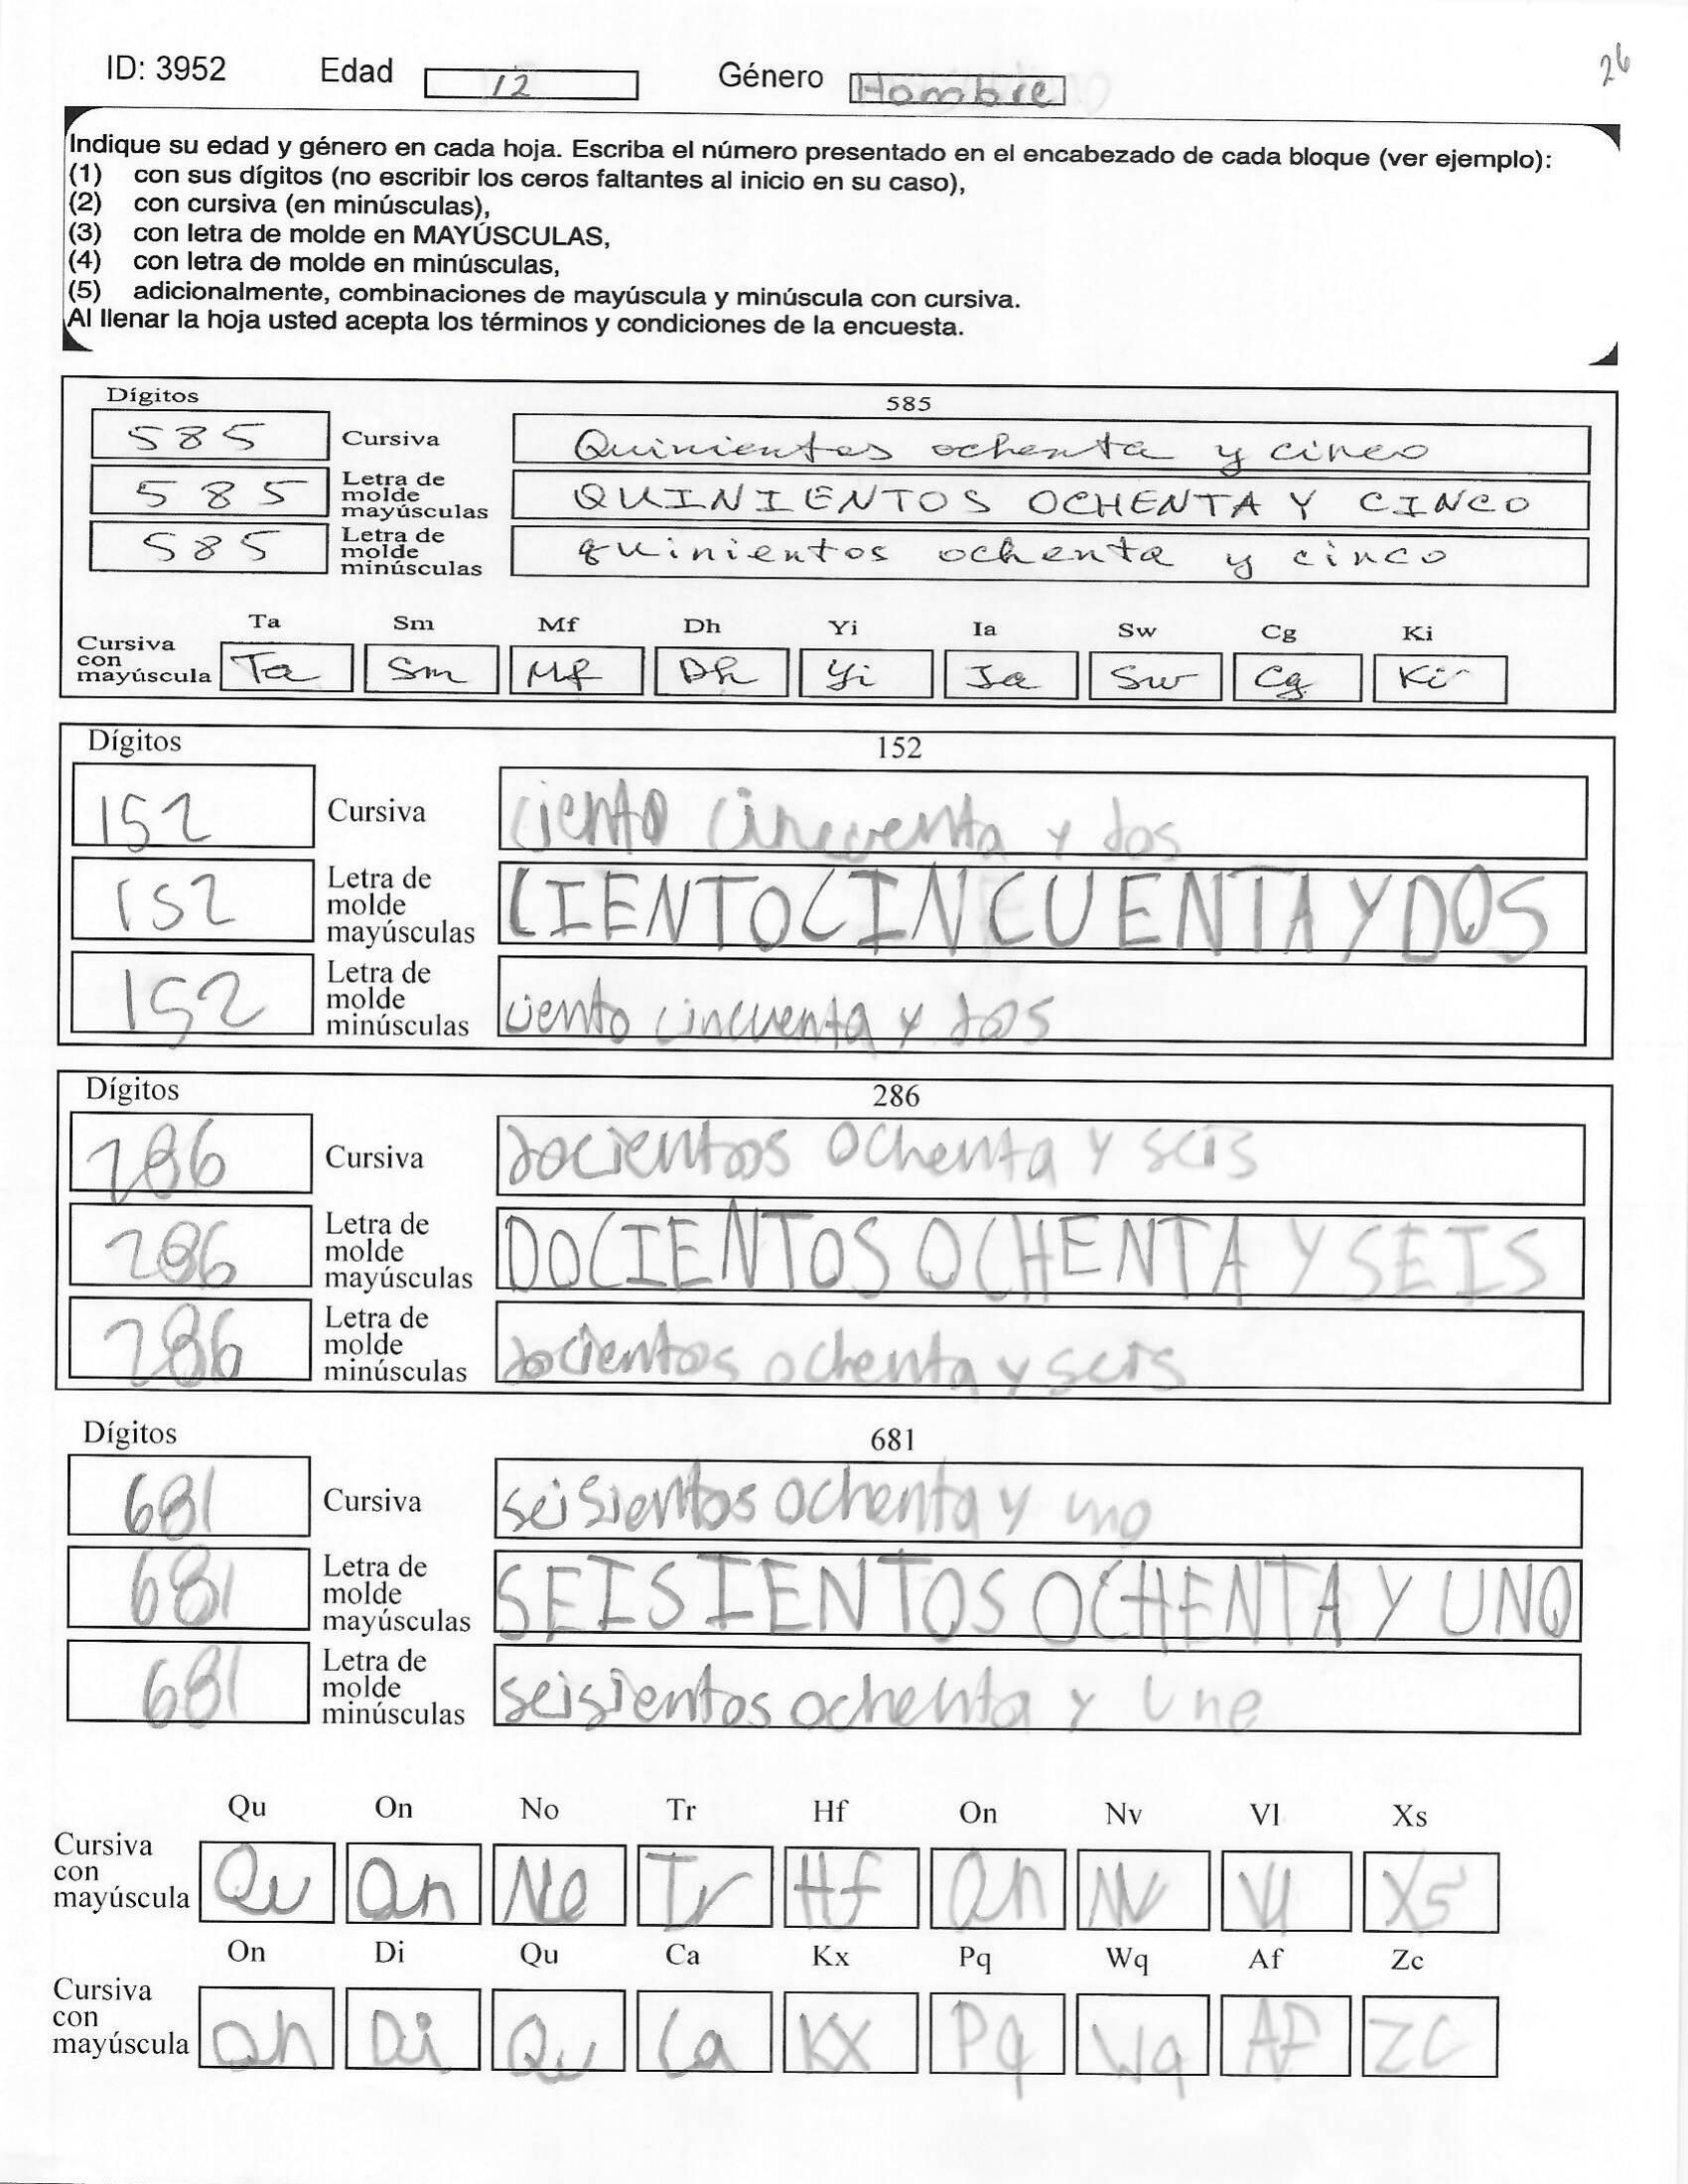 ID: 3952 Edad 12 Género Hombre 26
Indique su edad y género en cada hoja. Escriba el número presentado en el encabezado de cada bloque (ver ejemplo):
(1) con sus dígitos (no escribir los ceros faltantes al inicio en su caso),
(2) con cursiva (en minúsculas),
(3) con letra de molde en MAYÚSCULAS,
(4) con letra de molde en minúsculas,
(5) adicionalmente, combinaciones de mayúscula y minúscula con cursiva.
Al llenar la hoja usted acepta los términos y condiciones de la encuesta.
Dígitos 585
585 Cursiva Quinientos ochenta y cinco
585 Letra de molde mayúsculas QUINIENTOS OCHENTA Y CINCO
585 Letra de molde minúsculas quinientos ochenta y cinco
Ta Sm Mf Dh Yi Ia Sw Cg Ki
Cursiva con mayúscula Ta Sm Mf Dh Yi Ia Sw Cg Ki
Dígitos 152
152 Cursiva ciento cincuenta y dos
152 Letra de molde mayúsculas CIENTO CINCUENTA Y DOS
152 Letra de molde minúsculas ciento cincuenta y dos
Dígitos 286
286 Cursiva docientos ochenta y seis
286 Letra de molde mayúsculas DOCIENTOS OCHENTA Y SEIS
286 Letra de molde minúsculas docientos ochenta y seis
Dígitos 681
681 Cursiva seisientos ochenta y uno
681 Letra de molde mayúsculas SEISIENTOS OCHENTA Y UNO
681 Letra de molde minúsculas seisientos ochenta y une
Qu On No Tr Hf On Nv Vl Xs
Cursiva con mayúscula Qu On No Tr Hf On Nv Vl Xs
On Di Qu Ca Kx Pq Wq Af Zc
Cursiva con mayúscula On Di Qu Ca Kx Pq Wq Af Zc